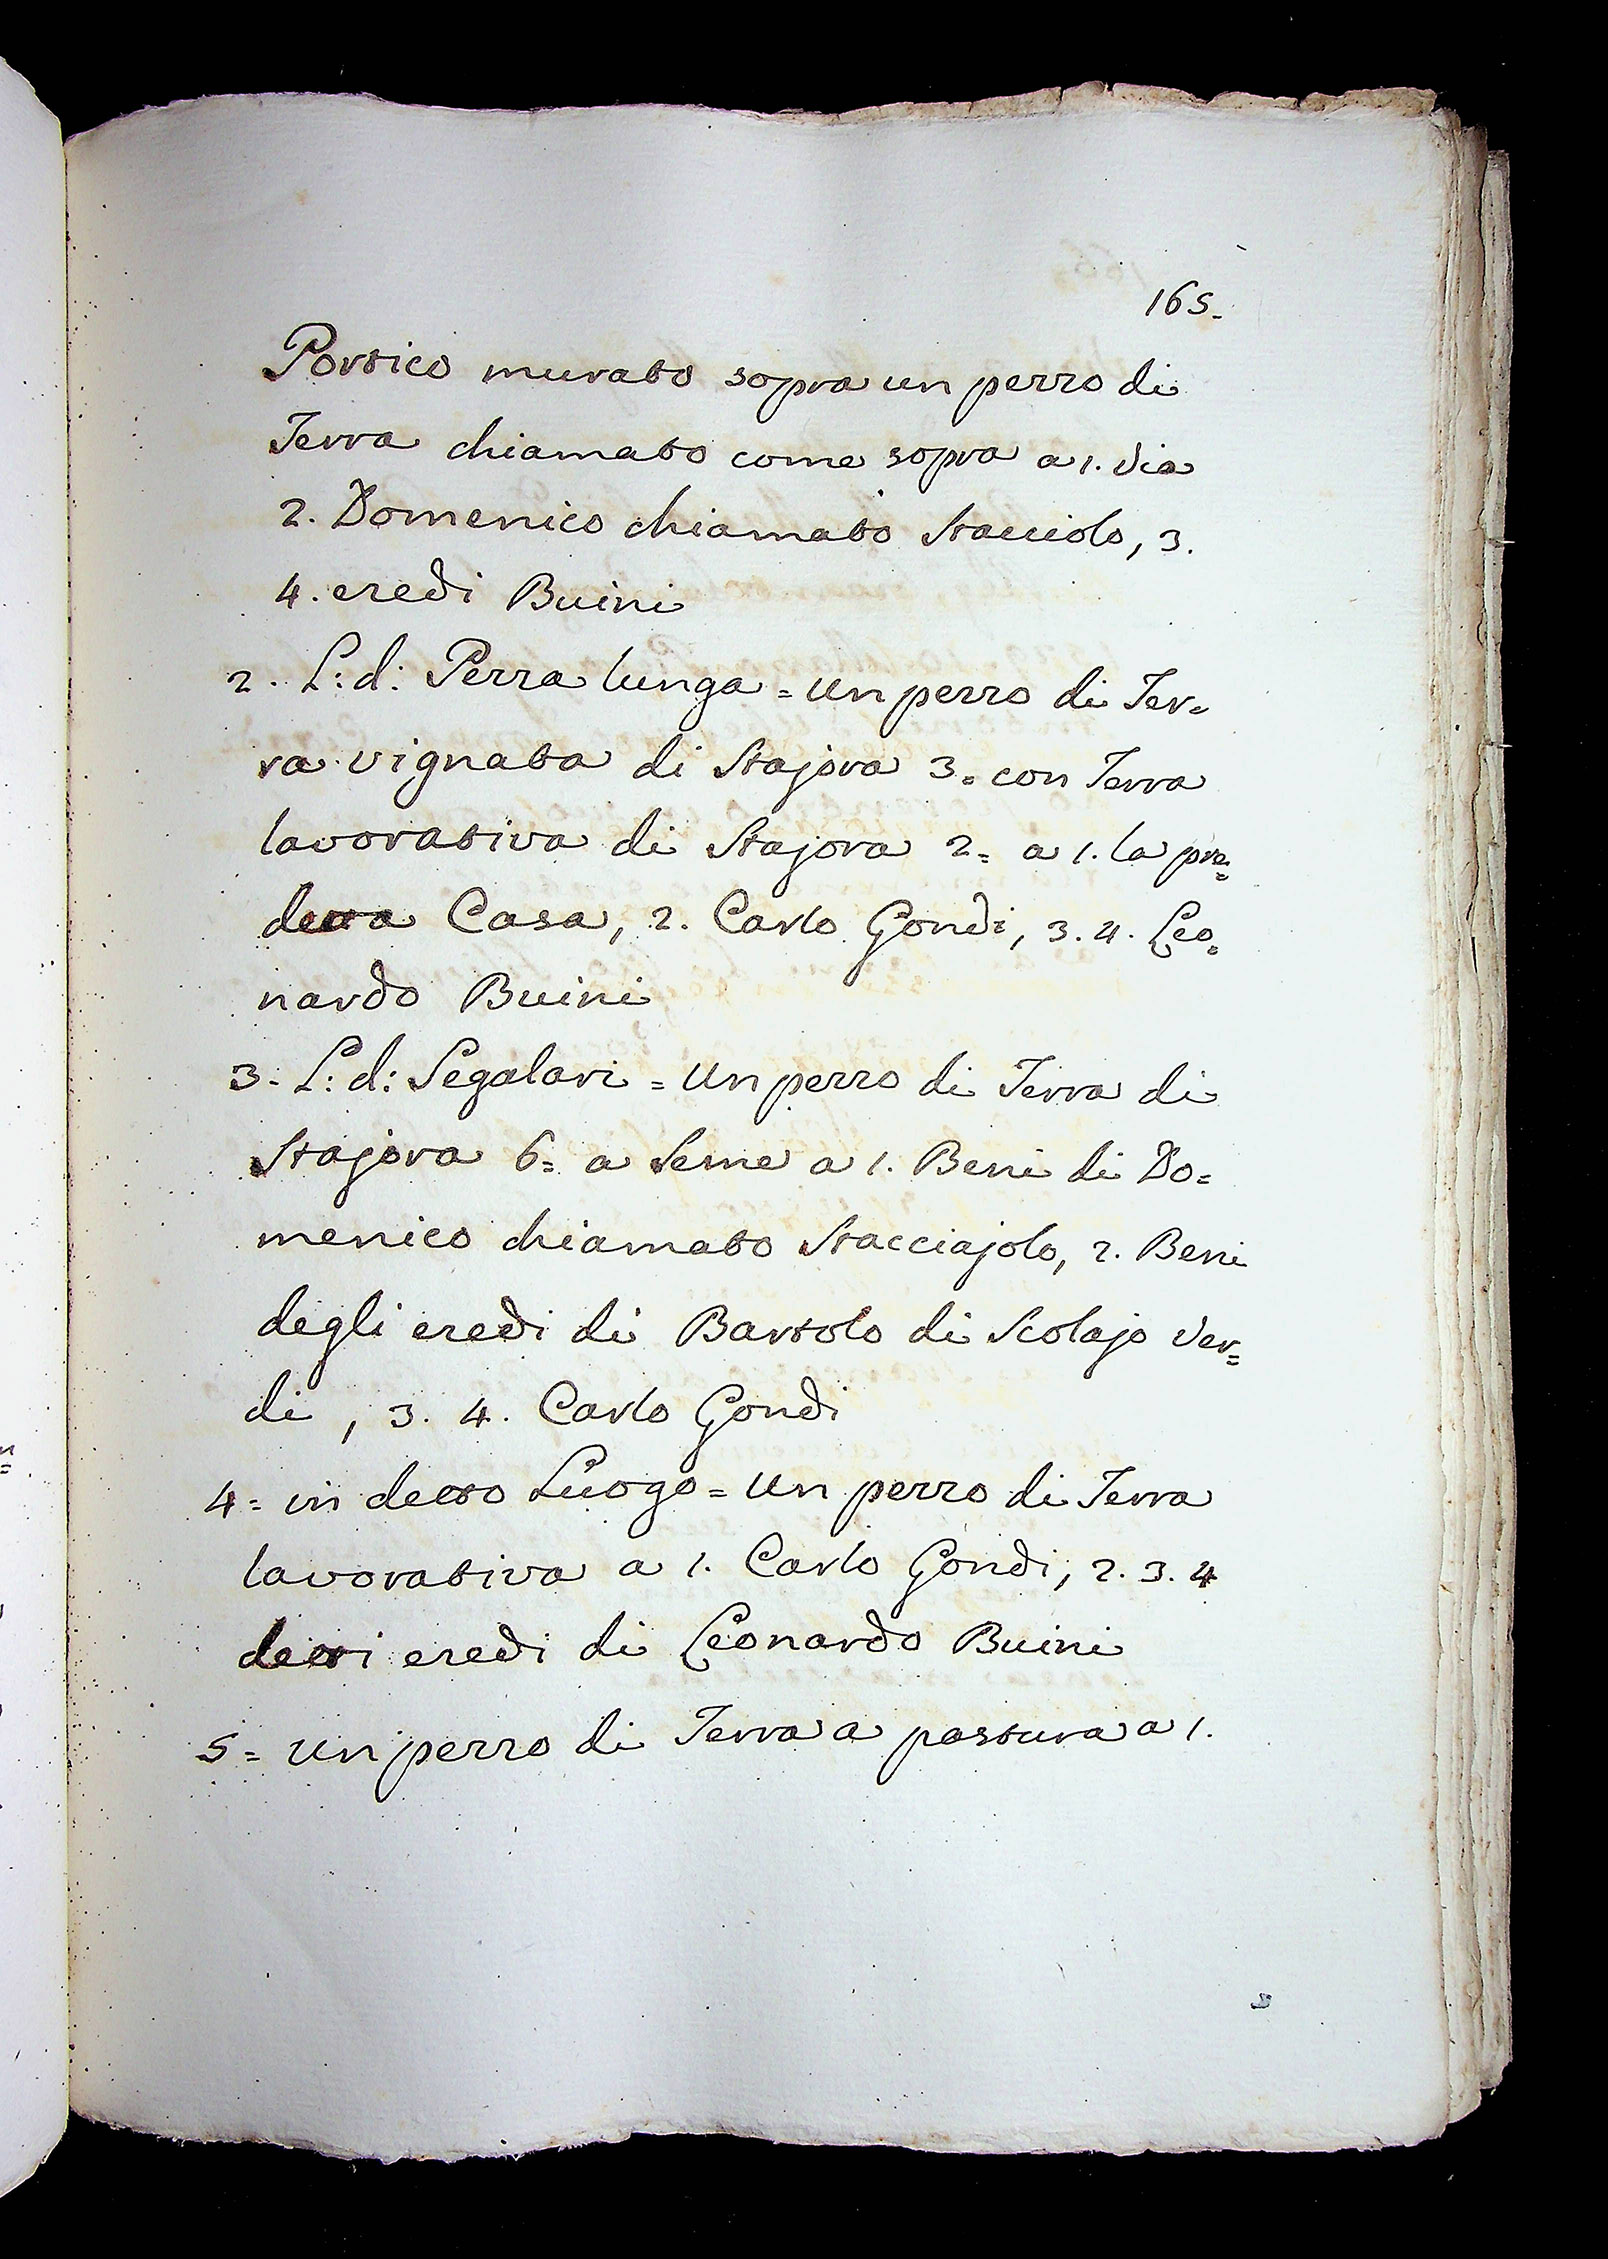 165.
Portico murato sopra un pezzo di
Terra chiamato come sopra a 1. via
2. Domenico chiamato Stacciolo, 3.
4. eredi Buini
2. L: d: Pezza lunga = un pezzo di Ter=
ra vignata di Stajora 3= con Terra
lavorativa di Stajora 2= a 1. la pre=
detta Casa, 2. Carlo Gondi, 3. 4. Leo=
nardo Buini
3. L: d: Segalari = un pezzo di Terra di
Stajora 6= a Seme a 1. Beni di Do=
menico chiamato Stacciajolo, 2. Beni
degli eredi di Bartolo di Scolajo Ver=
di, 3. 4. Carlo Gondi
4= in detto Luogo = un pezzo di Terra
lavorativa a 1. Carlo Gondi, 2. 3. 4
detti eredi di Leonardo Buini
5= un pezzo di Terra a pastura a 1.